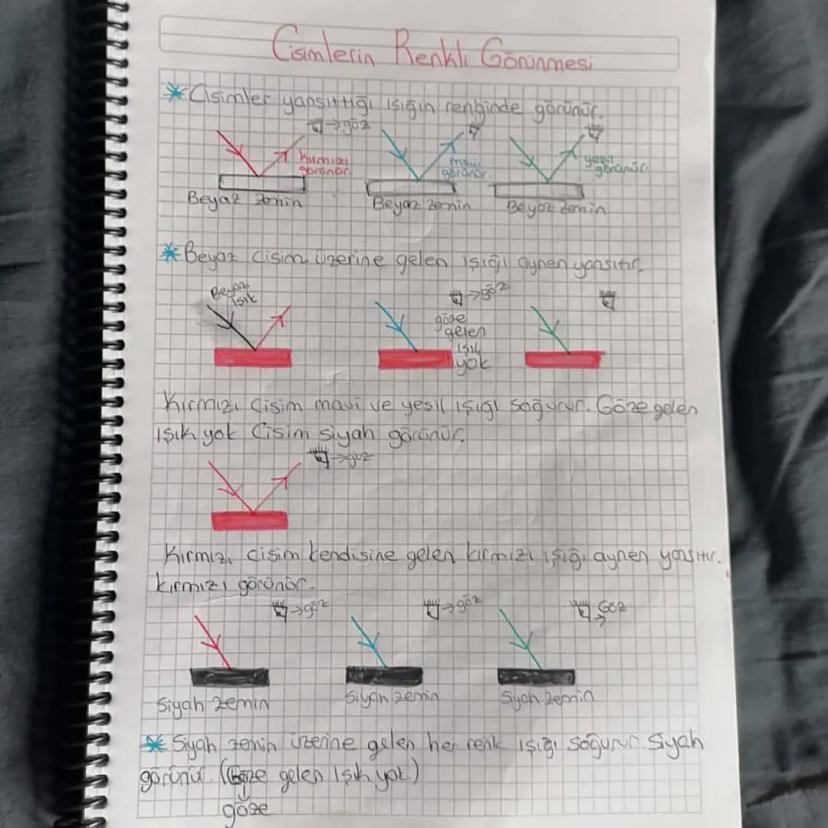 Cisimlerin Renkli Görünmesi
* Cisimler yansıttığı ışığın renginde görünür.
→göz
kırmızı görünür.
mavi görünür.
yeşil görünür.
Beyaz zemin
Beyaz zemin
Beyaz zemin
* Beyaz cisim üzerine gelen ışığı aynen yansıtır.
Beyaz
ışık
→göz
göze
gelen
ışık
yok
Kırmızı cisim mavi ve yeşil ışığı soğurur. Göze gelen
ışık yok Cisim siyah görünür.
→göz
Kırmızı cisim kendisine gelen kırmızı ışığı aynen yansıtır.
kırmızı görünür.
→göz
→göz
→Göz
Siyah zemin
Siyah zemin
Siyah zemin
* Siyah zemin üzerine gelen her renk ışığı soğurur. Siyah
görünür. (Göze gelen Işık yok)
göze